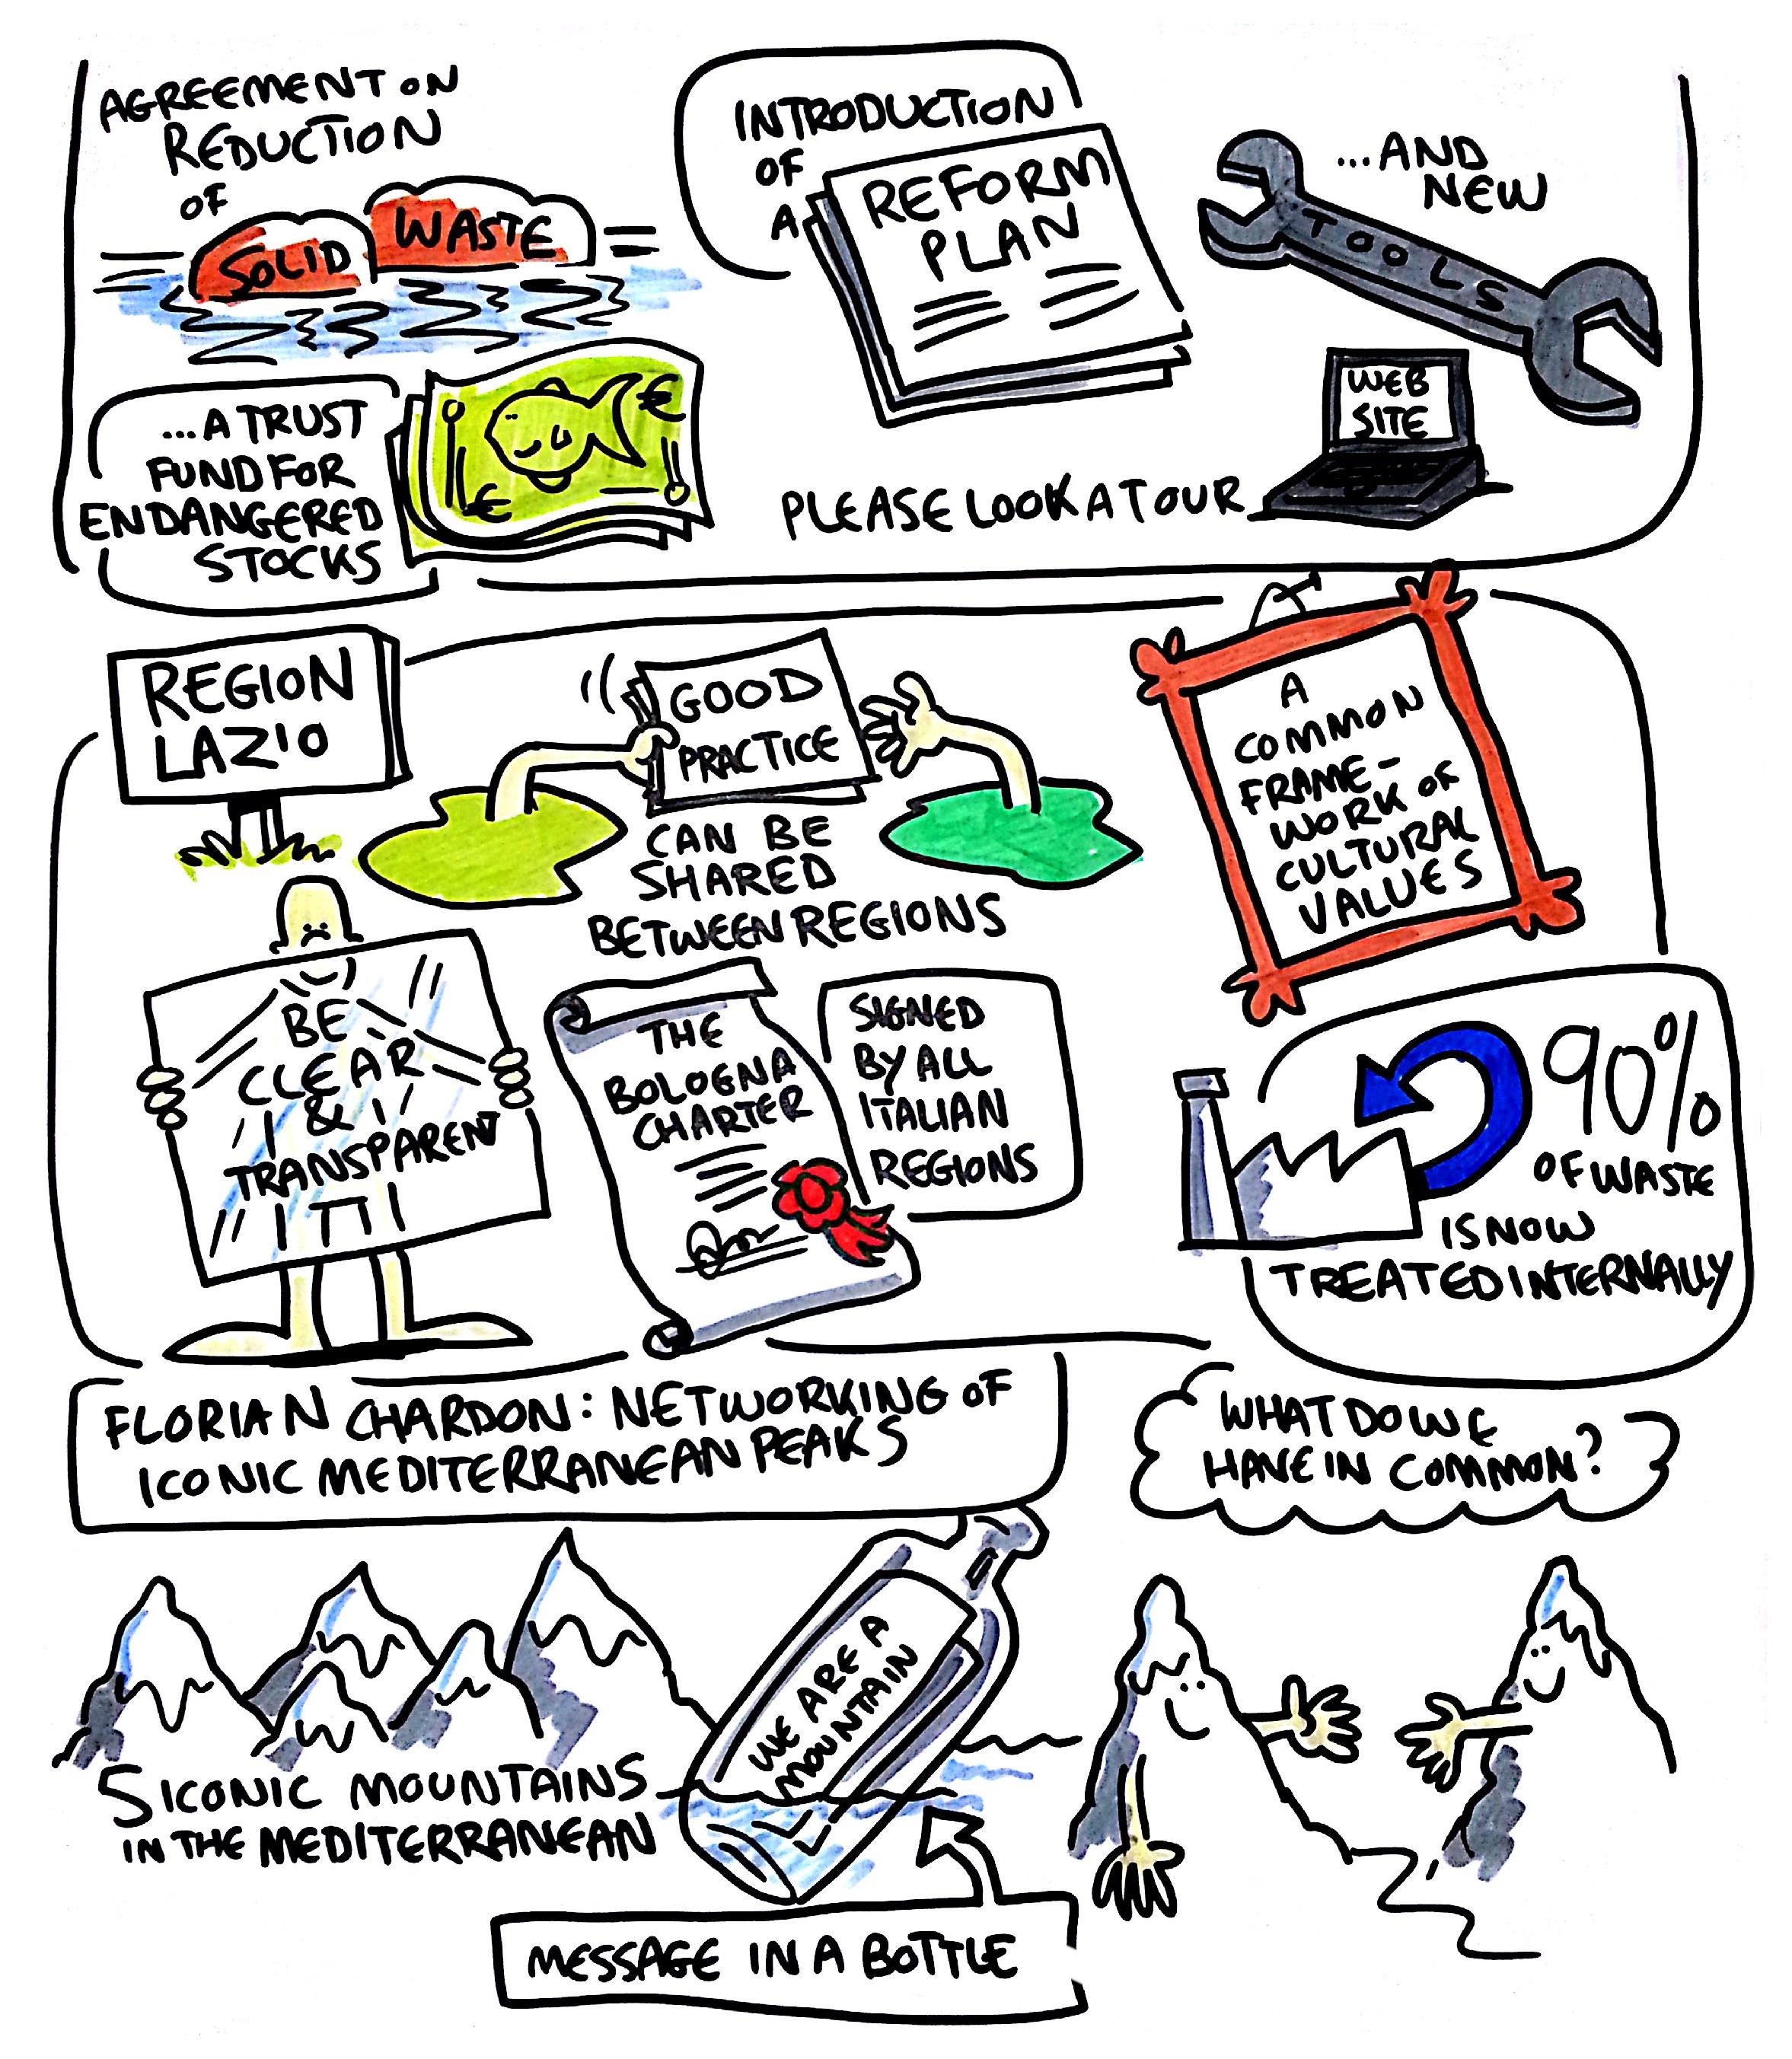 AGREEMENT ON
REDUCTION
OF
SOLID WASTE
...A TRUST
FUND FOR
ENDANGERED
STOCKS
€
€
INTRODUCTION
OF
A
REFORM
PLAN
...AND
NEW
TOOLS
PLEASE LOOK AT OUR
WEB
SITE
REGION
LAZIO
GOOD
PRACTICE
CAN BE
SHARED
BETWEEN REGIONS
A
COMMON
FRAME-
WORK OF
CULTURAL
VALUES
BE
CLEAR
&
TRANSPARENT
THE
BOLOGNA
CHARTER
SIGNED
BY ALL
ITALIAN
REGIONS
90%
OF WASTE
IS NOW
TREATED INTERNALLY
FLORIAN CHARDON: NETWORKING OF
ICONIC MEDITERRANEAN PEAKS
WHAT DO WE
HAVE IN COMMON?
5 ICONIC MOUNTAINS
IN THE MEDITERRANEAN
WE ARE A
MOUNTAIN
MESSAGE IN A BOTTLE